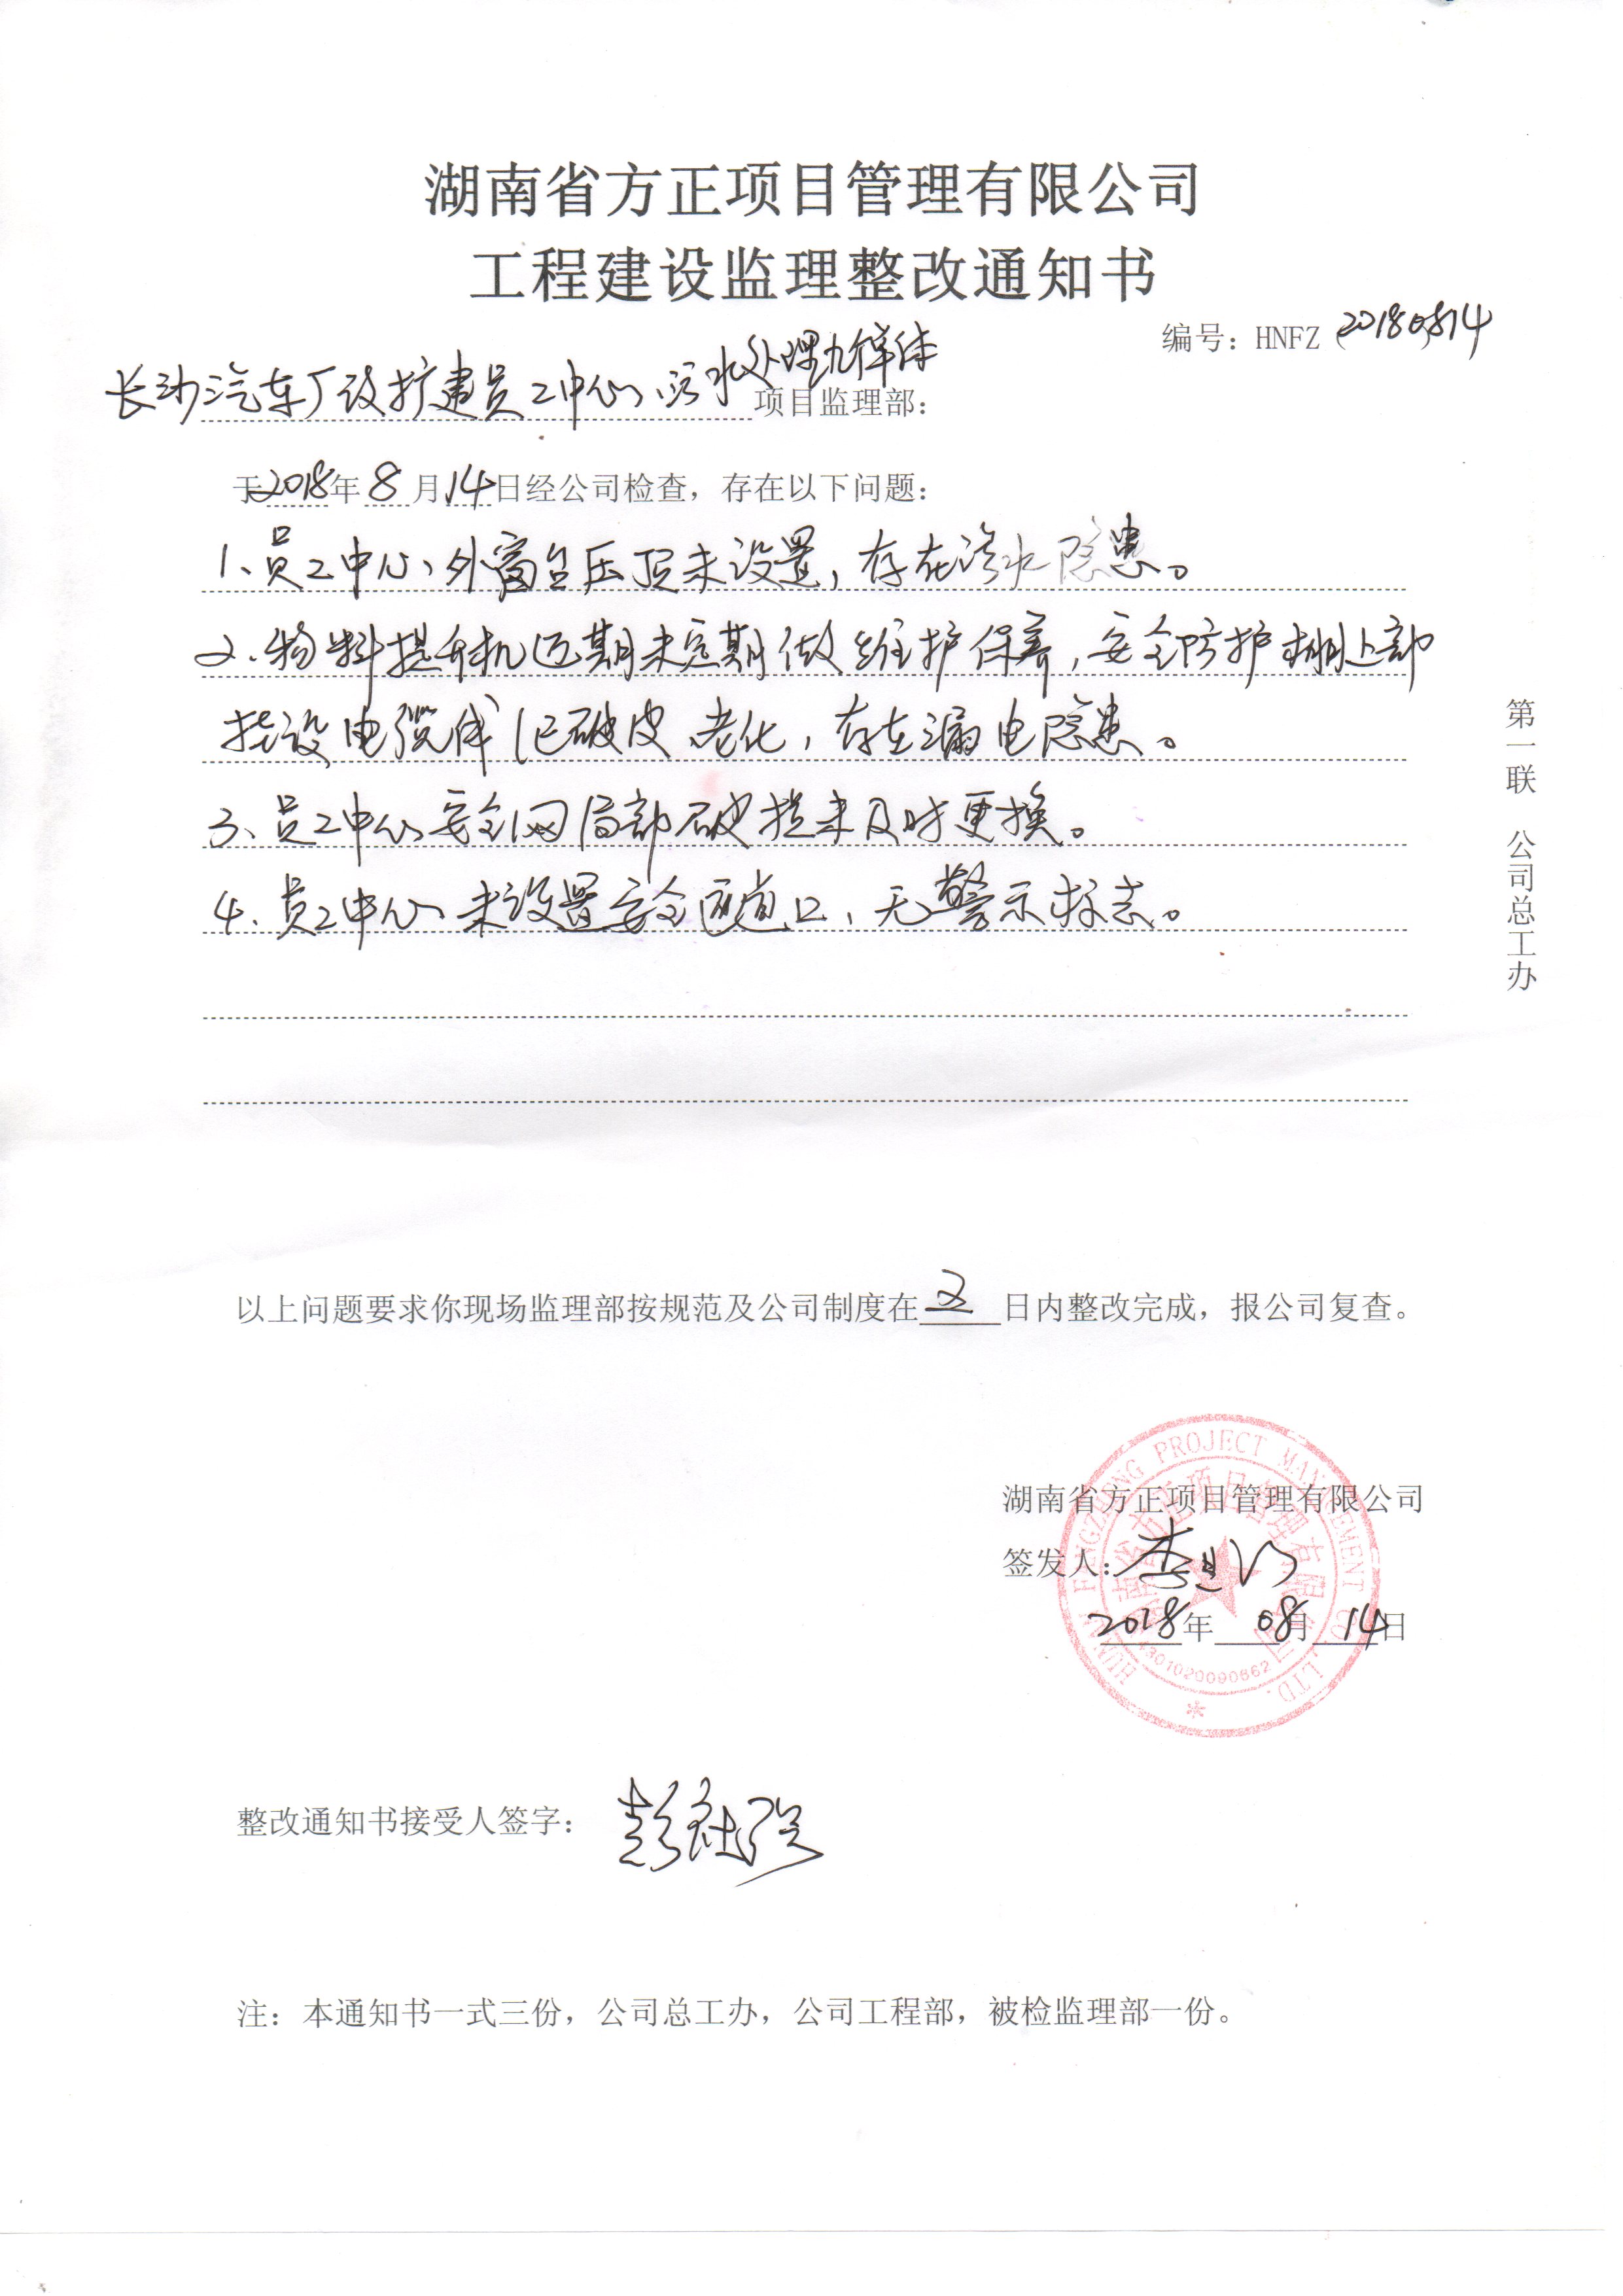 湖南省方正项目管理有限公司
工程建设监理整改通知书
编号：HNFZ 20180814
长沙汽车厂改扩建员工中心、污水处理
项目监理部：
于2018年8月14日经公司检查，存在以下问题：
1、员工中心、外窗台压顶未设置，存在渗水隐患。
2、物料提升机近期未定期做维护保养，安全防护棚上部
挂设电缆线已破皮、老化，存在漏电隐患。
3、员工中心安全网局部破损未及时更换。
4、员工中心未设置安全通道口，无警示标志。
第一联 公司总工办
以上问题要求你现场监理部按规范及公司制度在 2 日内整改完成，报公司复查。
湖南省方正项目管理有限公司
签发人：李
2018年08月14日
HUNAN FANGZHENG PROJECT MANAGEMENT CO.,LTD.
湖南省方正项目管理有限公司
4301020090662
整改通知书接受人签字：彭
注：本通知书一式三份，公司总工办，公司工程部，被检监理部一份。